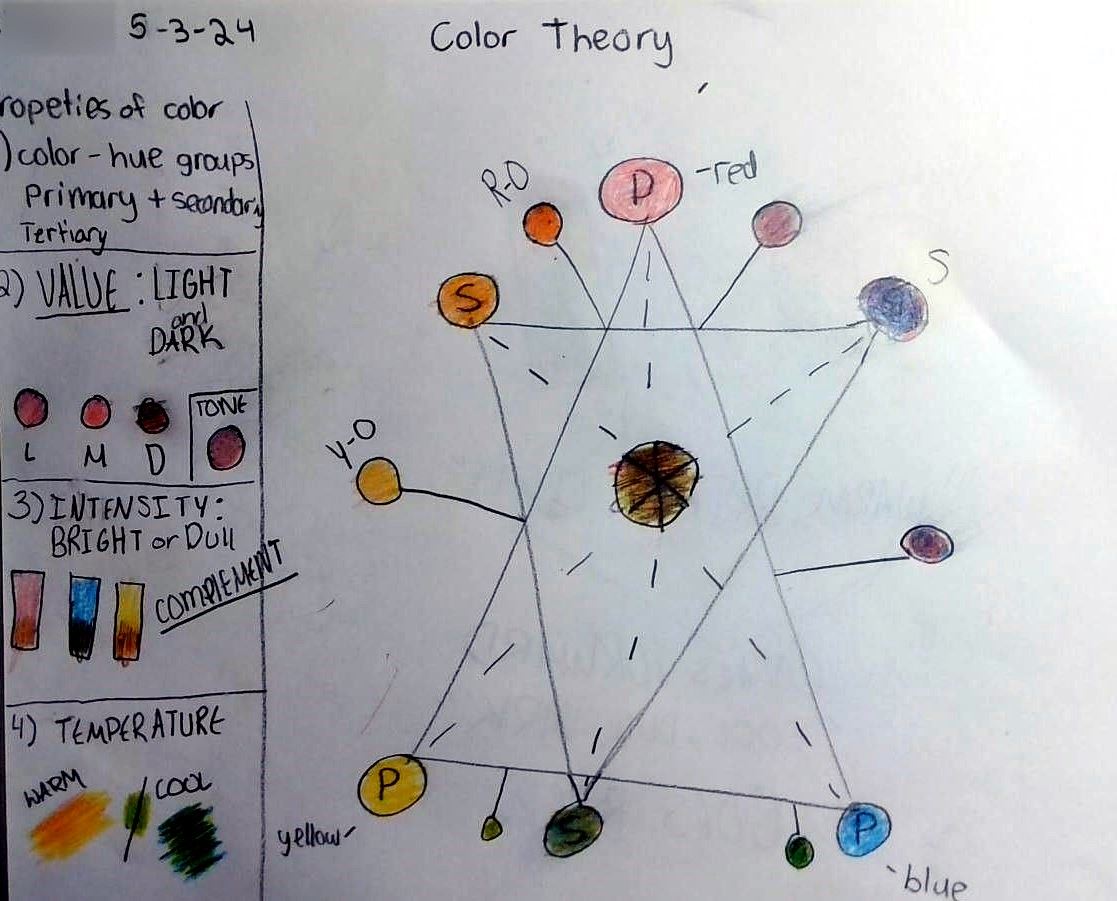 5-3-24
Color Theory
ropeties of color
) color - hue groups
Primary + secondary
Tertiary
2) VALUE : LIGHT
and
DARK
L M D
TONE
3) INTENSITY:
BRIGHT or Dull
COMPLEMENT
4) TEMPERATURE
WARM
COOL
R-O
P
-red
S
S
Y-O
P
yellow-
S
P
-blue